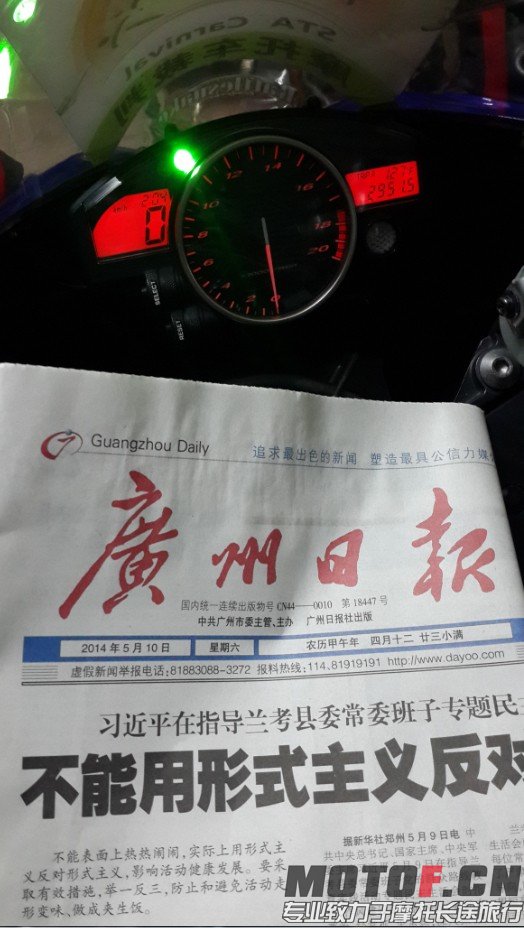 STA Carnival
摩托车裁判
km/h
2:04
0
TRIP
29515
SELECT
RESET
0
2
4
6
8
10
12
14
16
18
20
Guangzhou Daily
追求最出色的新闻 塑造最具公信力媒
廣州日報
国内统一连续出版物号 CN44——0010 第 18447 号
中共广州市委主管、主办 广州日报社出版
2014 年 5 月 10 日 星期六 农历甲午年 四月十二 廿三小满
虚假新闻举报电话:81883088-3272 报料热线:114、81919191 http://www.dayoo.com
习近平在指导兰考县委常委班子专题民
不能用形式主义反对
不能表面上热热闹闹,实际上用形式主
义反对形式主义,影响活动健康发展。要采
取有效措施,举一反三,防止和避免活动走
形变味、做成夹生饭。
据新华社郑州 5 月 9 日电 中
共中央总书记、国家主席、中央军
生活会
MOTOF.CN
专业致力于摩托长途旅行